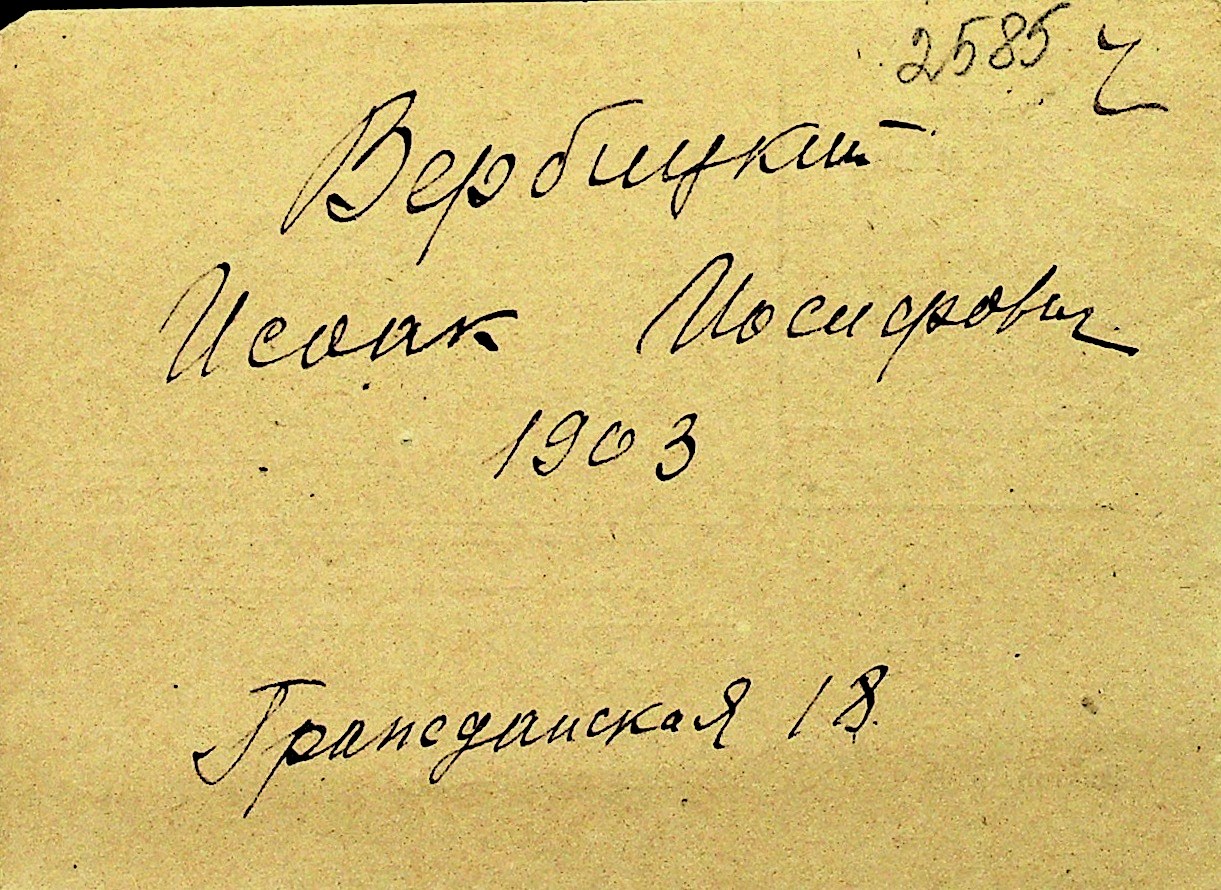 2585
Вербицкий
Исаак Иосифович
1903
Гражданская 18